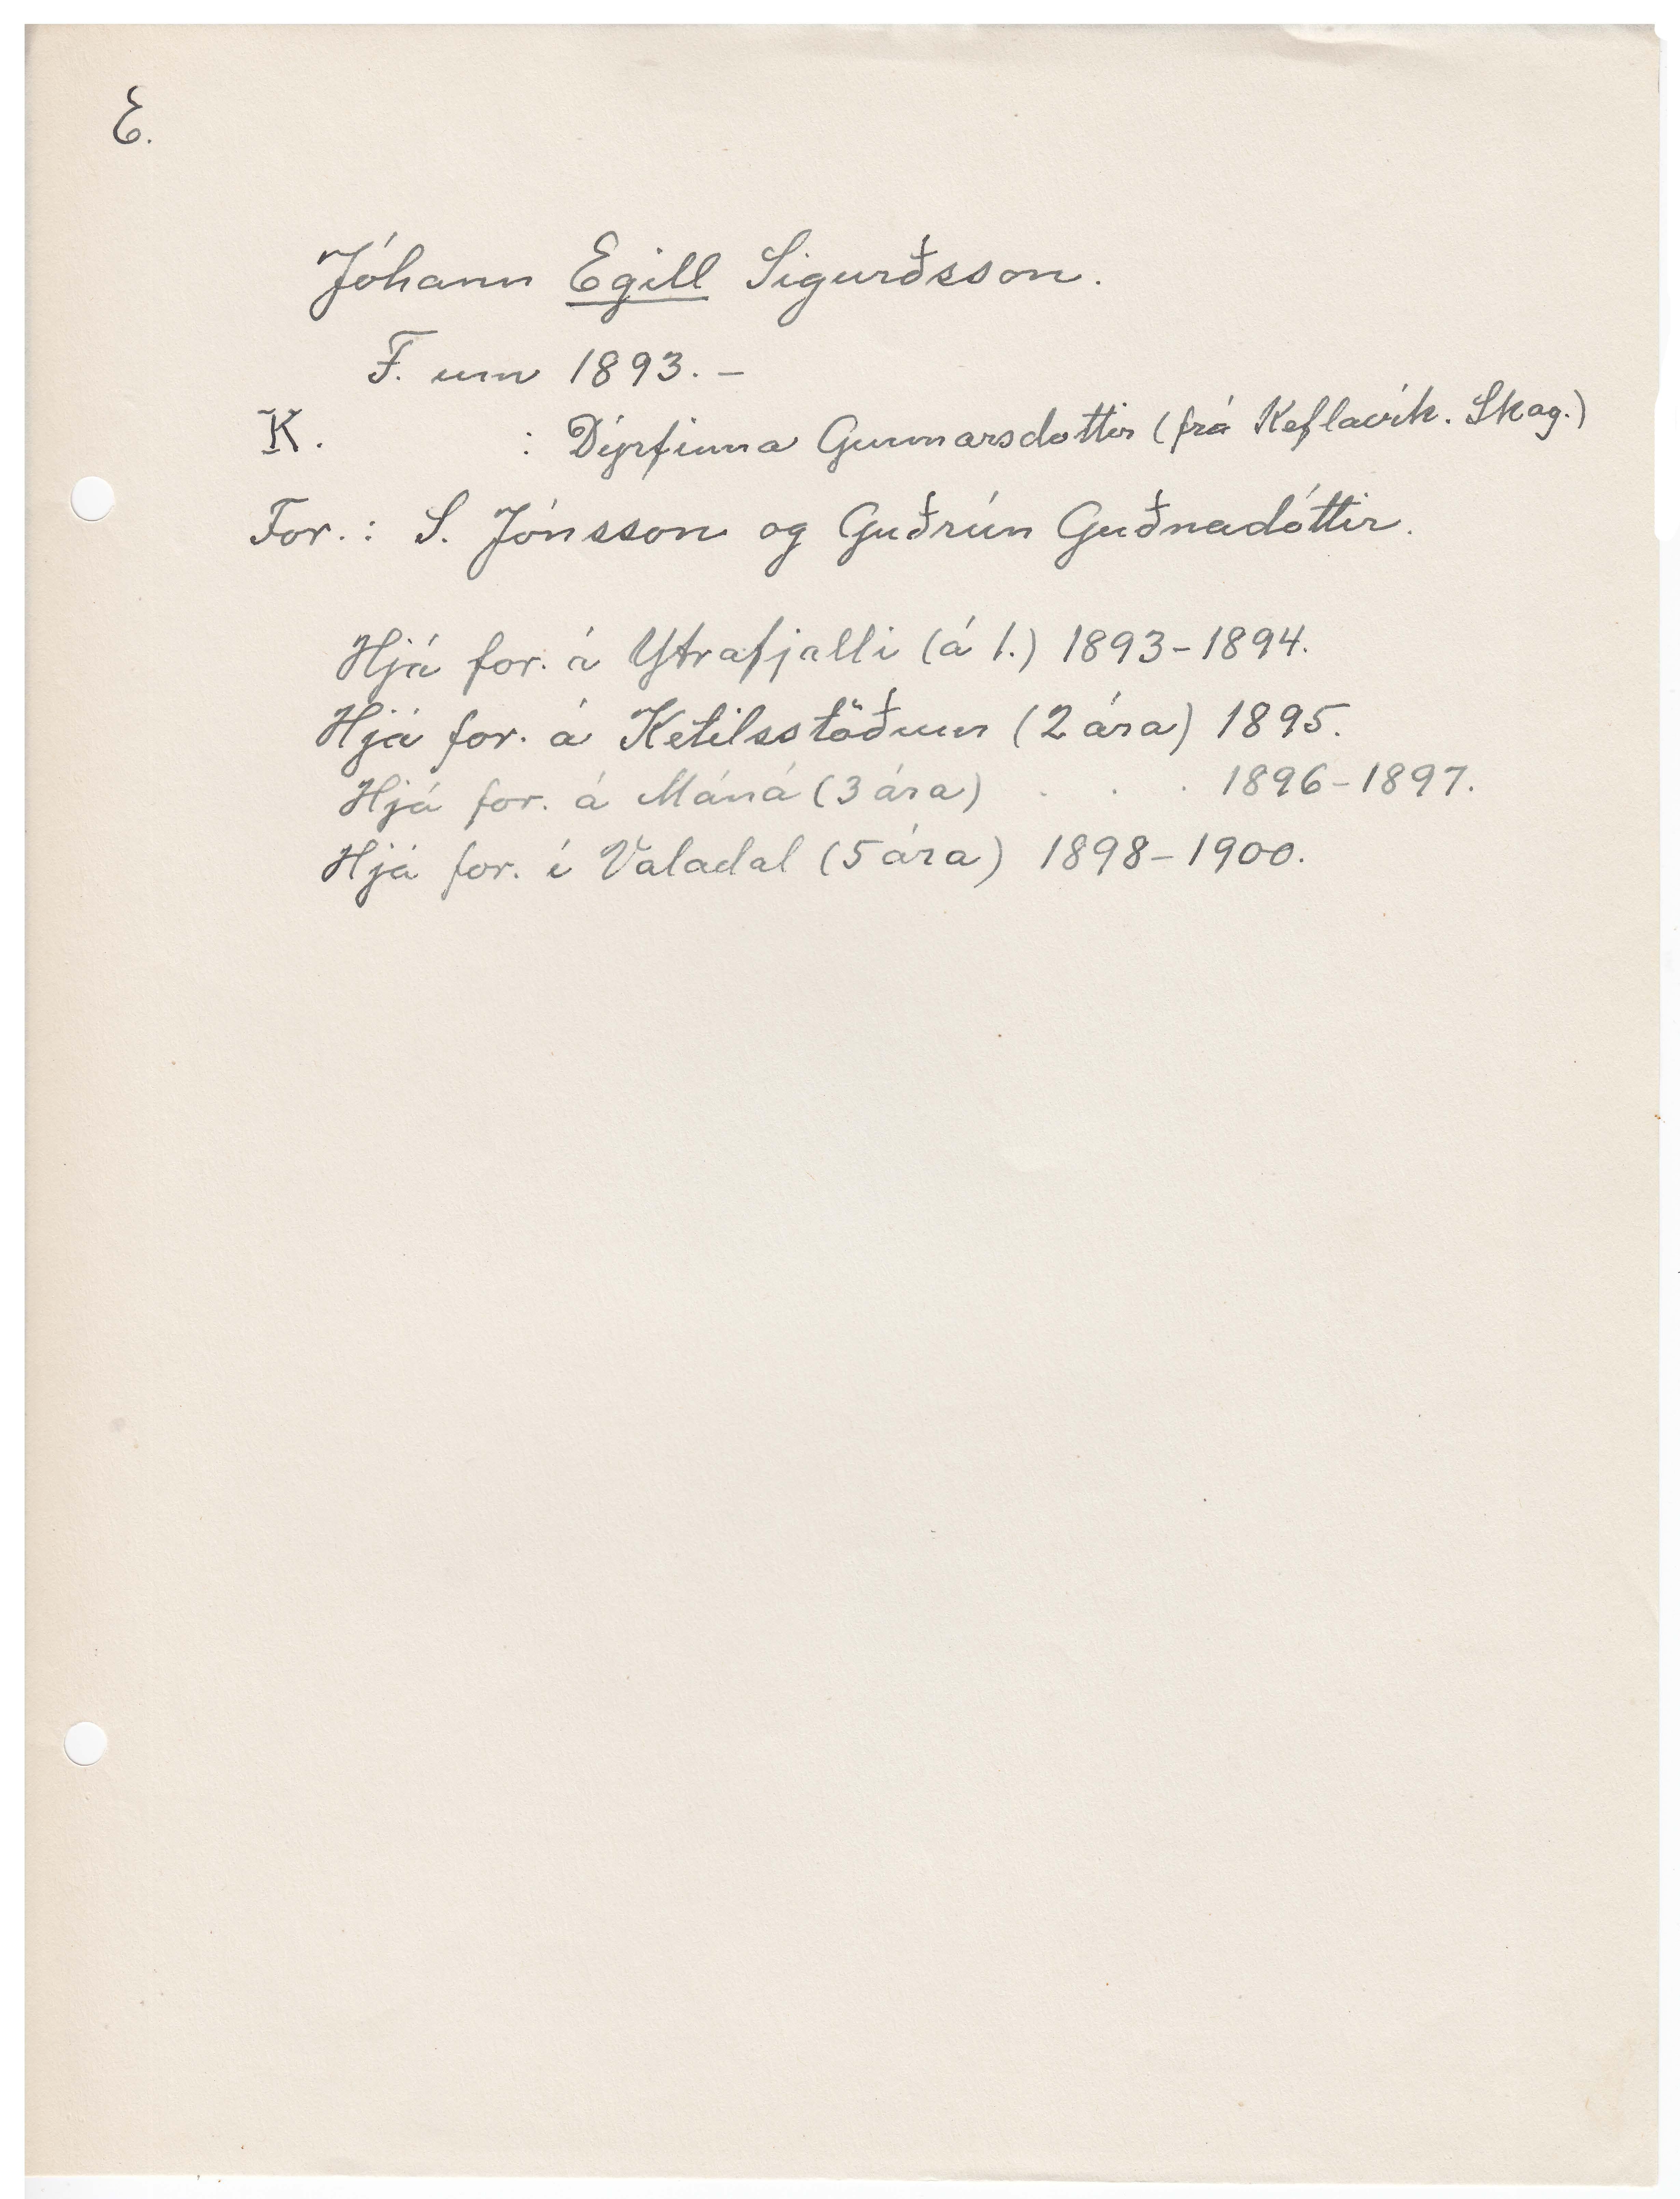 E.
Jóhann Egill Sigurðsson.
F. um 1893. –
K. : Dýrfinna Gunnarsdóttir (frá Keflavík. Skag.)
For.: S. Jónsson og Guðrún Guðnadóttir.
Hjá for. á Ytrafjalli (á 1.) 1893–1894.
Hjá for. á Ketilsstöðum (2 ára) 1895.
Hjá for. á Máná (3 ára) . . . 1896–1897.
Hjá for. í Valadal (5 ára) 1898–1900.